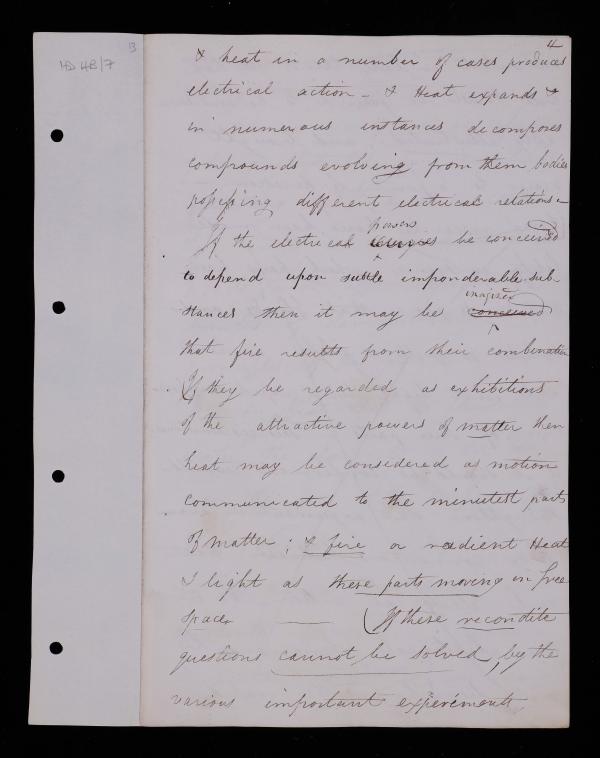 HD 4B/7
13
4
& heat in a number of cases produces
electrical action - & Heat expands &
in numerous instances decomposes
compounds evolving from them bodies
possessing different electrical relations -
powers
If the electrical be conceived
to depend upon subtle imponderable sub-
stances then it may be conceived
imagined
that fire results from their combination
(If they be regarded as exhibitions
of the attractive powers of matter then
heat may be considered as motion
communicated to the minutest parts
of matter; & fire or radient Heat
& light as these parts moving in free
space. — (If these recondite
questions cannot be solved, by the
various important experiments